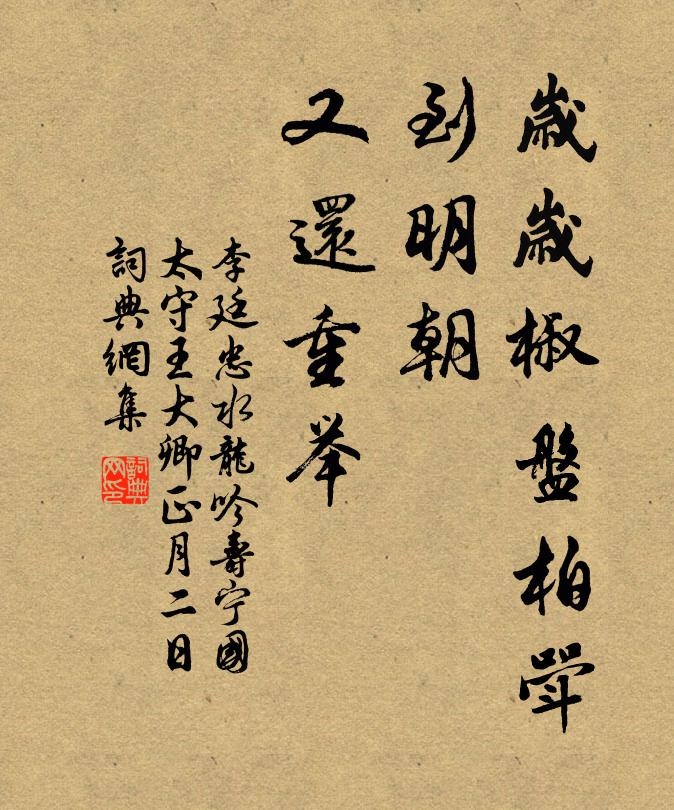 歲歲椒盤柏斝
到明朝
又還重举
李廷忠水龍吟壽宁國
太守王大卿正月二日
詞典網集
詞典
网印